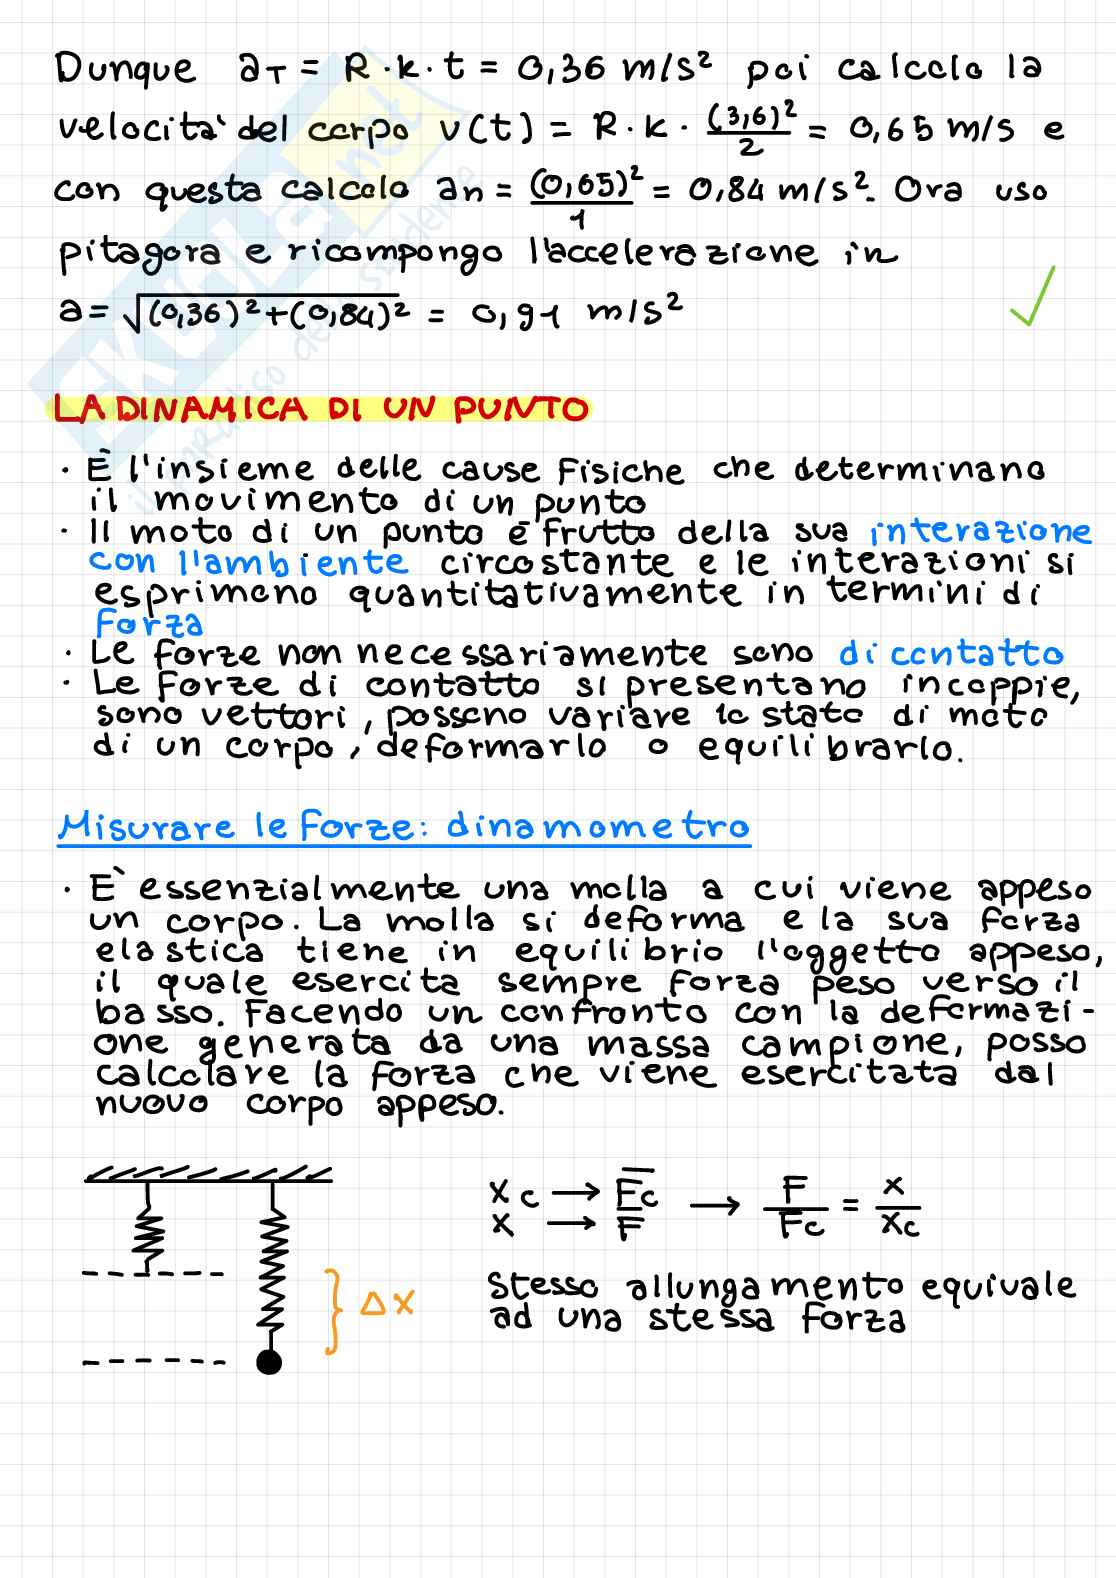 Dunque a_T = R · k · t = 0,36 m/s² poi calcolo la
velocità del corpo v(t) = R · k · (3,6)²/2 = 0,65 m/s e
con questa calcolo a_n = (0,65)²/1 = 0,84 m/s². Ora uso
pitagora e ricompongo l'accelerazione in
a = √((0,36)² + (0,84)²) = 0,91 m/s²
LA DINAMICA DI UN PUNTO
· È l'insieme delle cause fisiche che determinano
il movimento di un punto
· Il moto di un punto è frutto della sua interazione
con l'ambiente circostante e le interazioni si
esprimono quantitativamente in termini di
forza
· Le forze non necessariamente sono di contatto
· Le forze di contatto si presentano in coppie,
sono vettori, possono variare lo stato di moto
di un corpo, deformarlo o equilibrarlo.
Misurare le forze: dinamometro
· È essenzialmente una molla a cui viene appeso
un corpo. La molla si deforma e la sua forza
elastica tiene in equilibrio l'oggetto appeso,
il quale esercita sempre forza peso verso il
basso. Facendo un confronto con la deformazi-
one generata da una massa campione, posso
calcolare la forza che viene esercitata dal
nuovo corpo appeso.
x_c → F̅c̅ → F/F_c = x/x_c
x → F̅
Δx
Stesso allungamento equivale
ad una stessa forza
SKUOLA.net
il paradiso dello studente